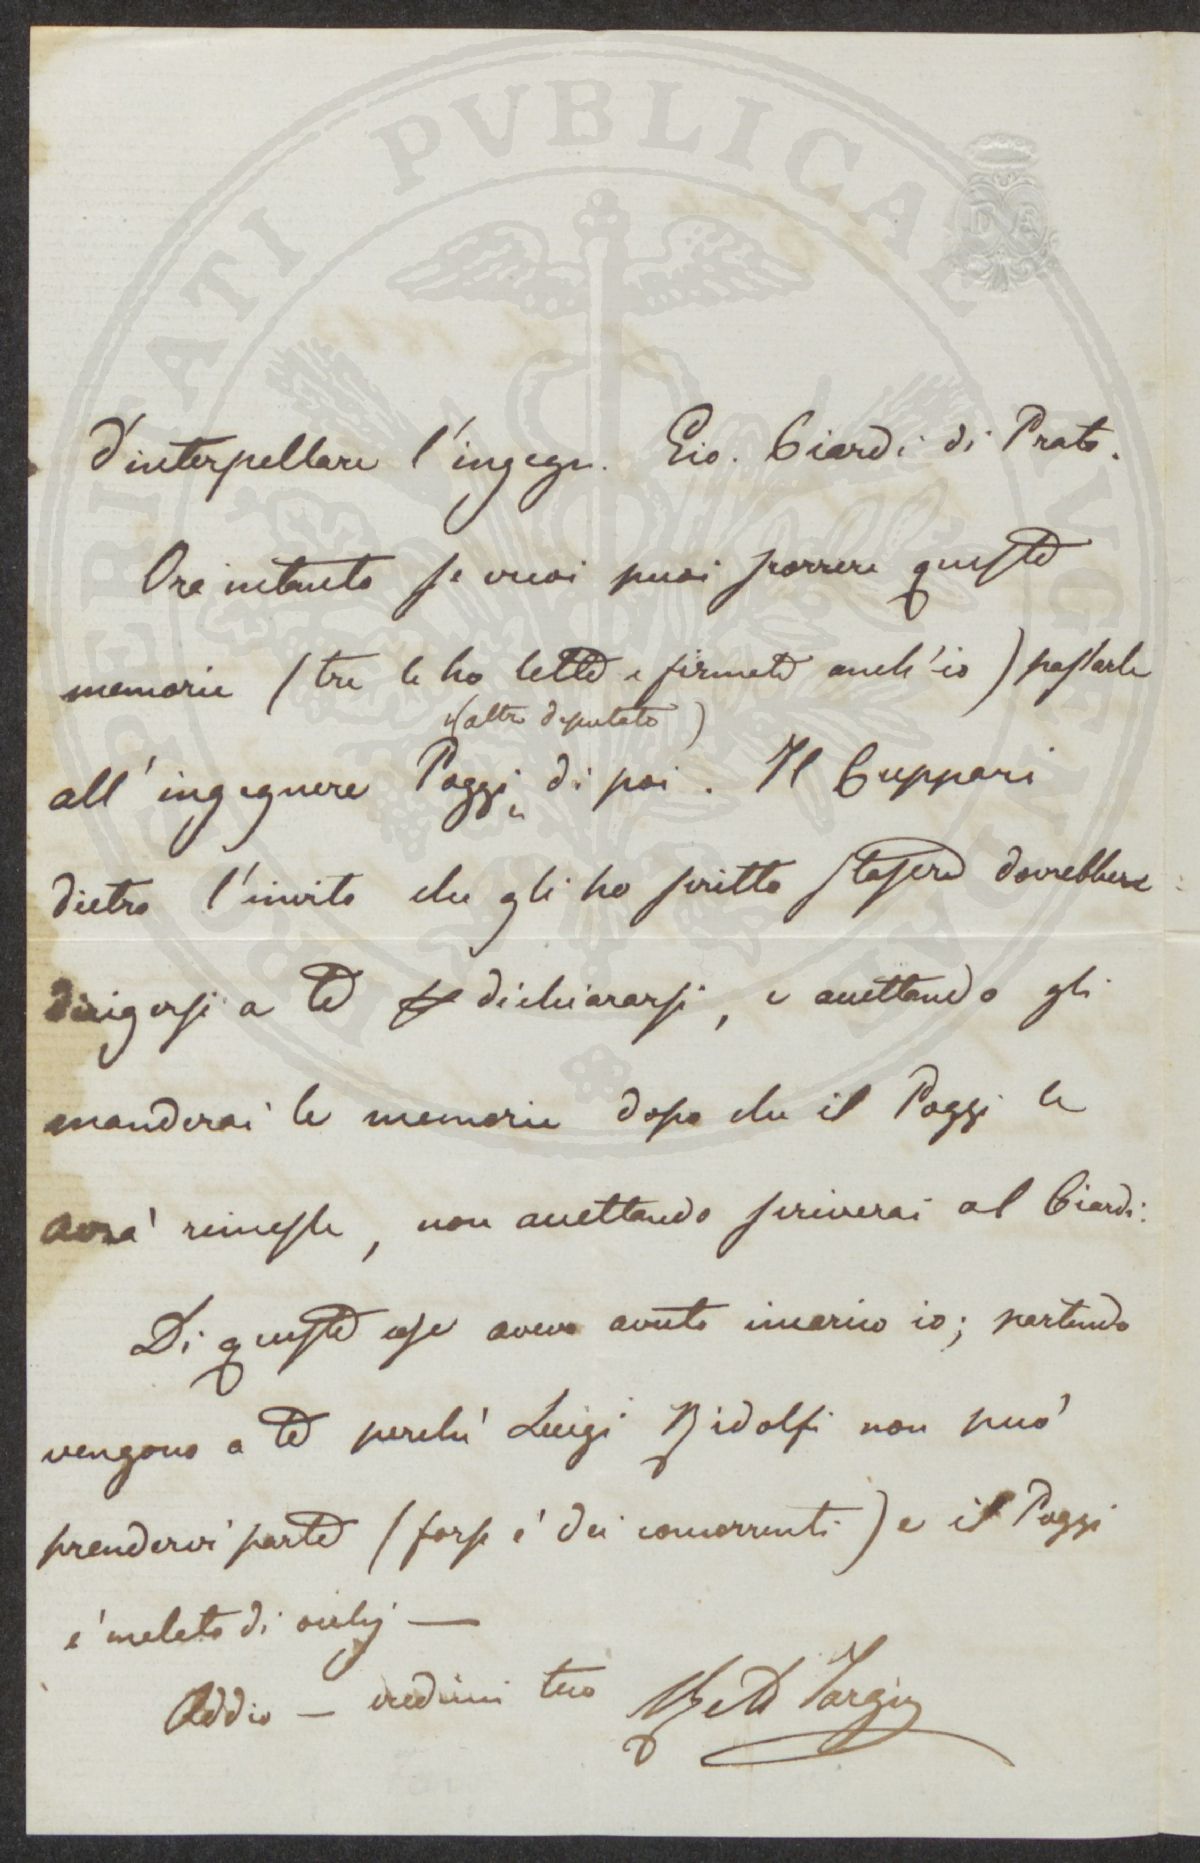 PROSPERITATI PVBLICAE AVGENDAE
D A
d'interpellare l'ingegn. Gio. Ciardi di Prato.
Ora intanto se vuoi puoi scorrere queste
memorie (tre le ho lette e firmate anch'io) passarle
(altro deputato)
all'ingegnere Poggi di poi. Il Cuppari
dietro l'invito che gli ho scritto stasera dovrebbe
dirigersi a te dichiararsi, e accettando gli
manderai le memorie dopo che il Poggi le
avrà rimesse, non accettando scriverai al Ciardi.
Di queste cose avevo avuto incarico io; partendo
vengono a te perchè Luigi Ridolfi non può
prendervi parte (forse è dei concorrenti) e il Poggi
è malato di occhj —
Addio — credimi tuo